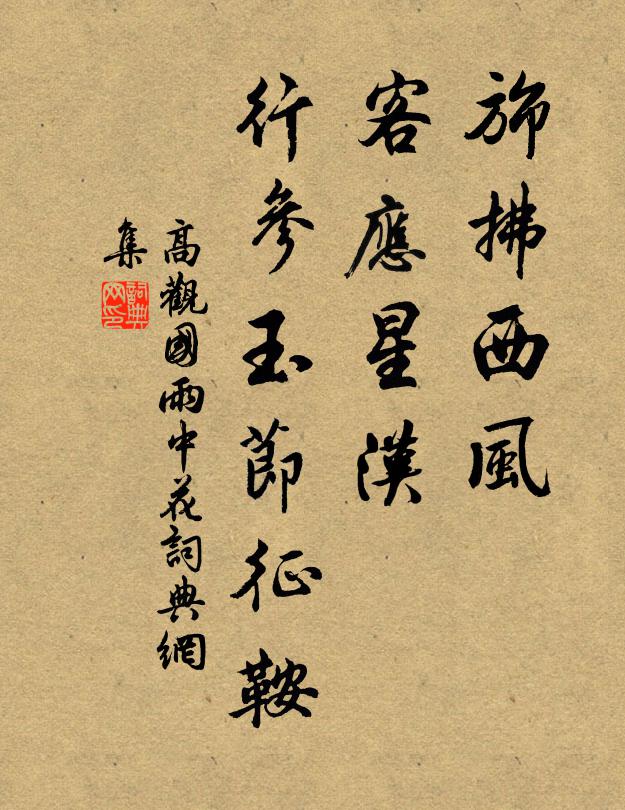 旆拂西風
客應星漢
行參玉節征鞍
高觀國雨中花詞典網
集
詞典網印